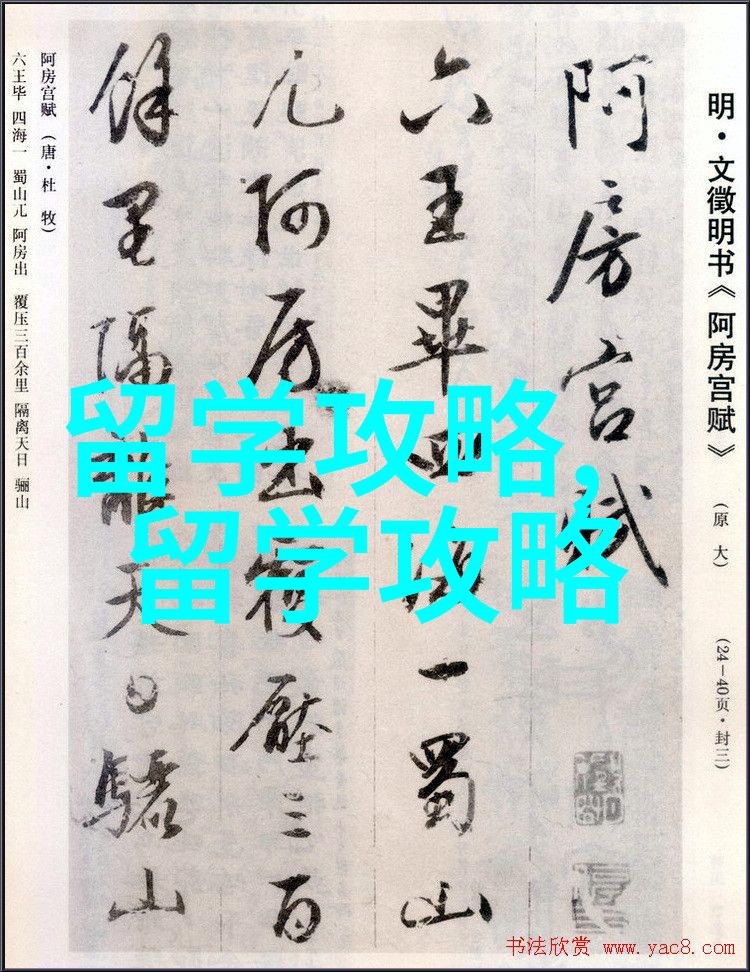 明·文徵明书《阿房宫赋》 (原大) (24—40页·封三)
阿房宫赋
六王畢四海一蜀山
兀阿房出覆壓三百
餘里隔離天日驪山
阿房宫赋 (唐·杜 牧)
六王毕 四海一 蜀山兀 阿房出 覆压三百余里 隔离天日 骊山
留学攻略,
留学攻略
书法欣赏 www.yac8.com